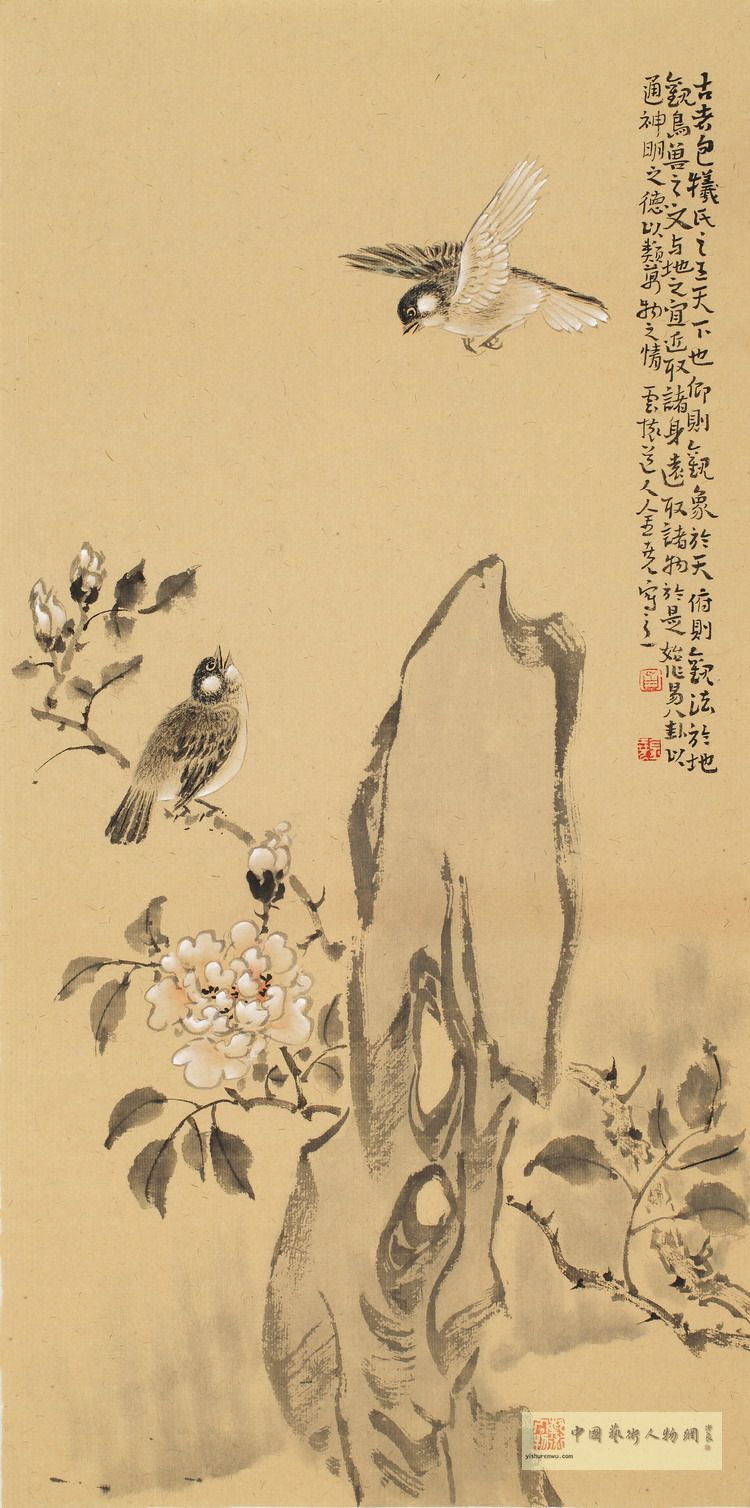 古者包犧氏之王天下也仰則觀象於天俯則觀法於地
觀鳥兽之文与地之宜近取諸身遠取諸物於是始作易八卦以
通神明之德以類萬物之情 道人 寫之
中國藝術人物網
yishurenwu.com